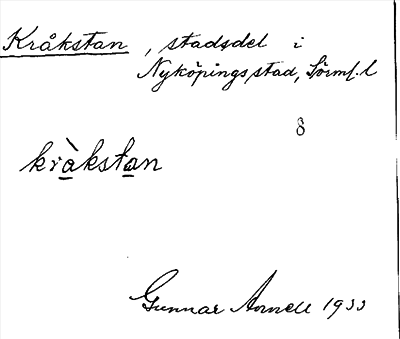 Kråkstan, stadsdel i
Nyköpings stad, Sörml. l
8
kràkstan
Gunnar Arnell 1933